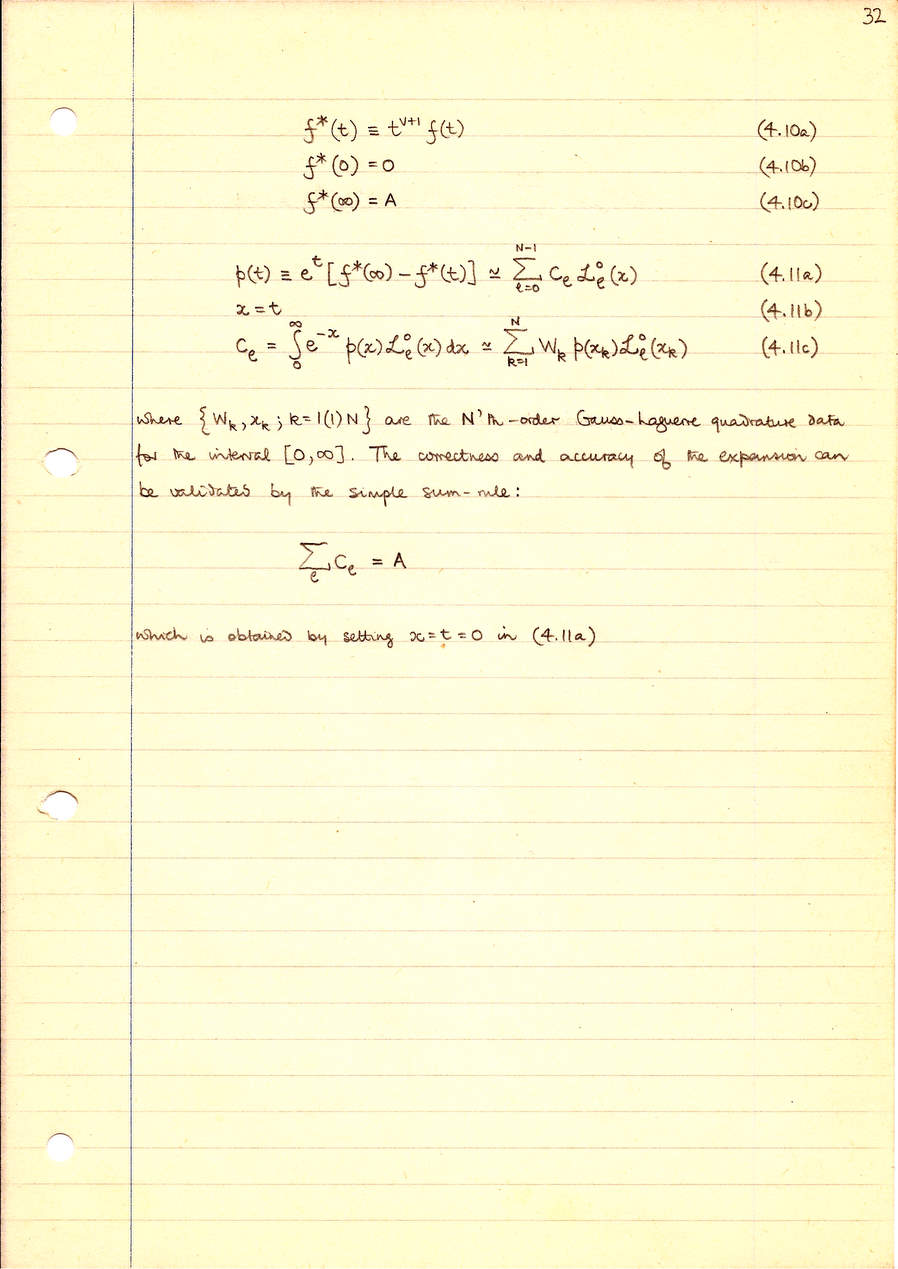 32
f*(t) ≡ t^{ν+1} f(t) (4.10a)
f*(0) = 0 (4.10b)
f*(∞) = A (4.10c)
p(t) ≡ e^t [f*(∞) − f*(t)] ≃ ∑_{ℓ=0}^{N−1} C_ℓ ℒ_ℓ^0(x) (4.11a)
x = t (4.11b)
C_ℓ = ∫_0^∞ e^{−x} p(x) ℒ_ℓ^0(x) dx ≃ ∑_{k=1}^{N} W_k p(x_k) ℒ_ℓ^0(x_k) (4.11c)
where {W_k, x_k ; k = 1(1)N} are the N'th-order Gauss-Laguerre quadrature data
for the interval [0,∞]. The correctness and accuracy of the expansion can
be validated by the simple sum-rule:
∑_ℓ C_ℓ = A
which is obtained by setting x = t = 0 in (4.11a)